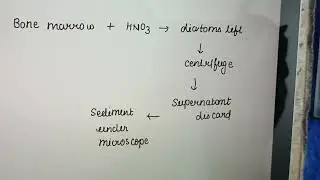 Bone marrow + HNO3 → diatoms left
↓
centrifuge
↓
Supernatant discard
←
Sediment under microscope